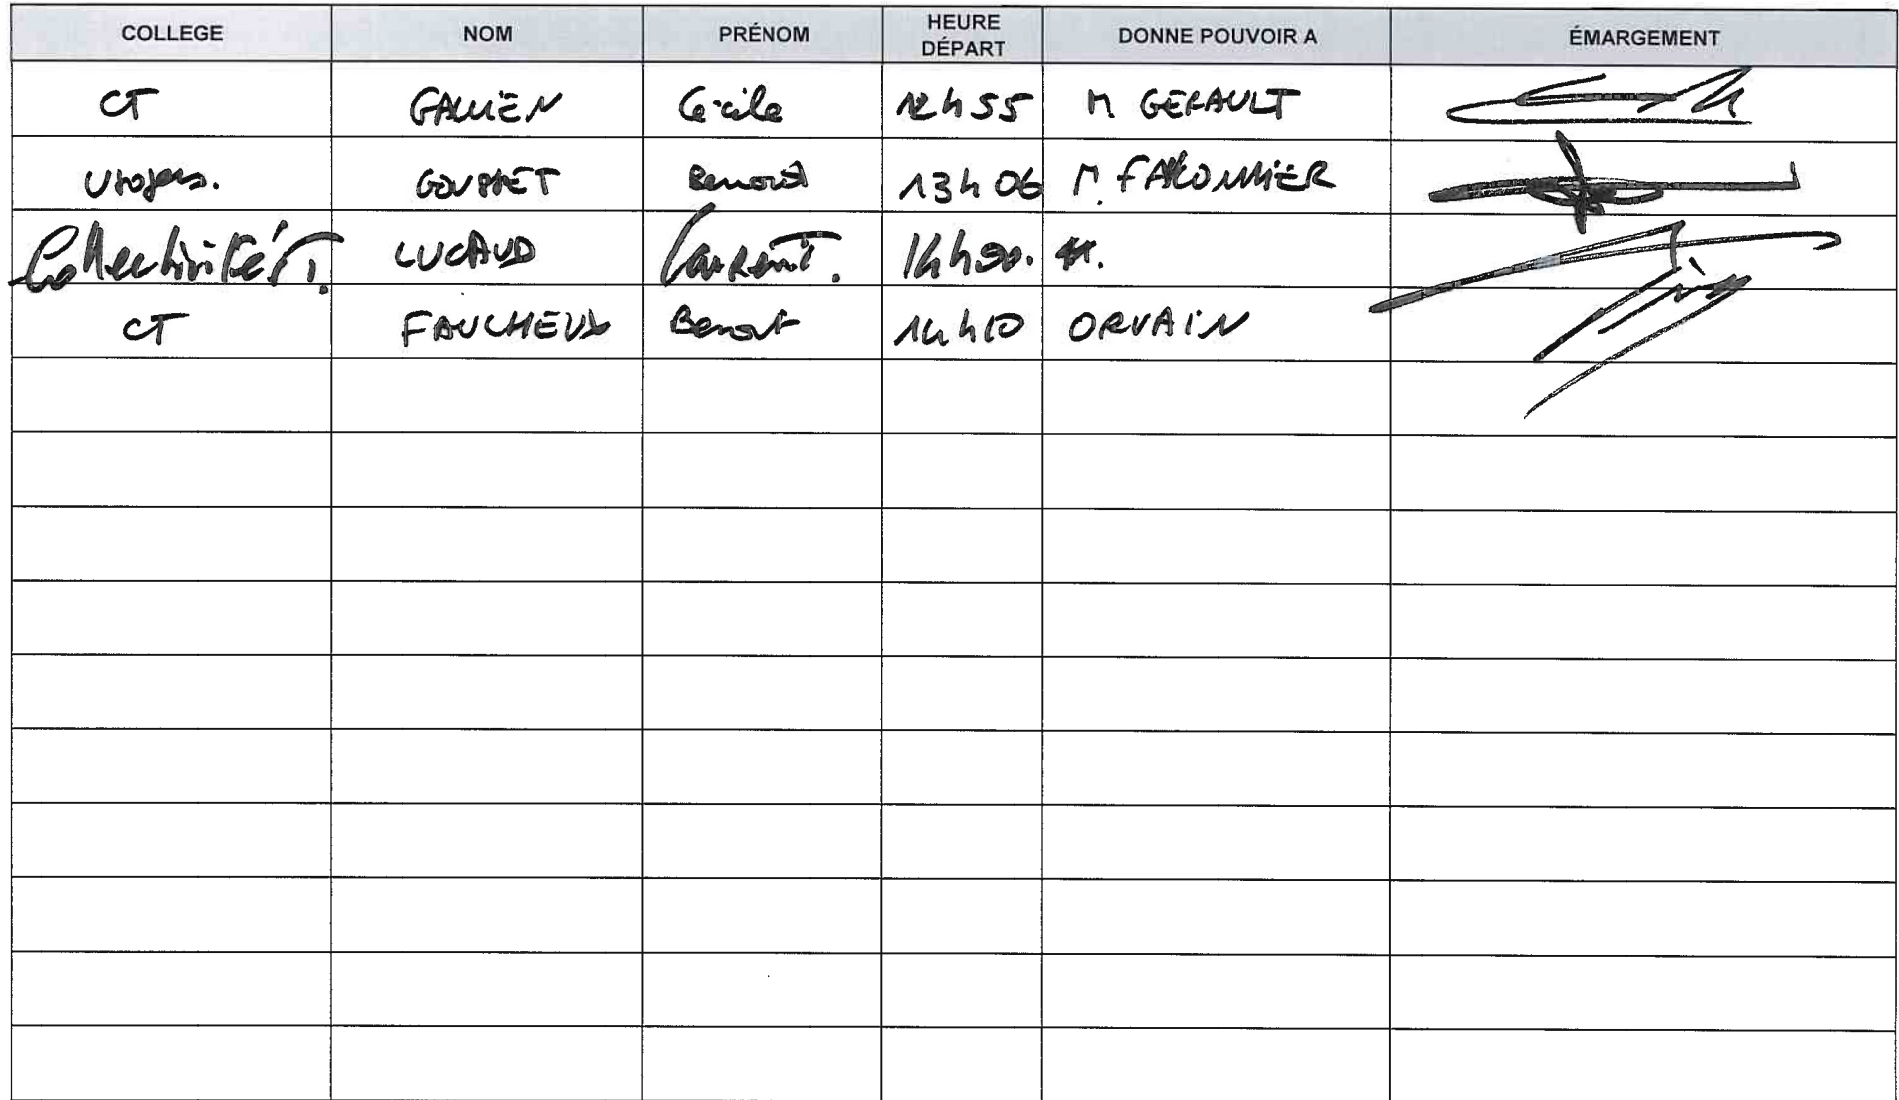 COLLEGE NOM PRÉNOM HEURE DÉPART DONNE POUVOIR A ÉMARGEMENT
CT GALLIEN Cécile 12h55 M GERAULT
Usagers. Benoit 13h06 M. FALCONNIER
Collectivités T. LUCAUD Laurent.
CT FAUCHEUX Benoit 14h10 ORVAIN